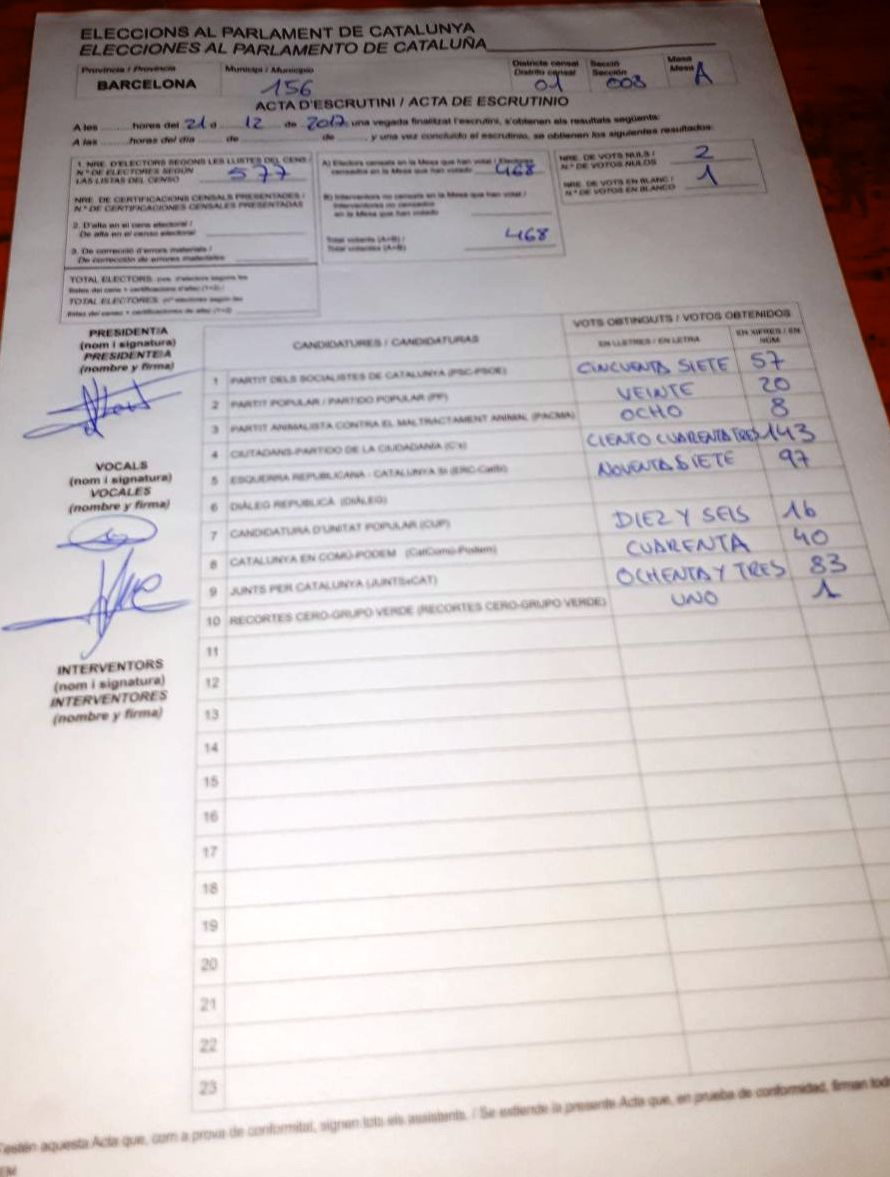 ELECCIONS AL PARLAMENT DE CATALUNYA
ELECCIONES AL PARLAMENTO DE CATALUÑA
Província / Provincia
BARCELONA
Municipi / Municipio
156
Districte censal
Distrito censal
01
Secció
Sección
003
Mesa
Mesa
A
ACTA D'ESCRUTINI / ACTA DE ESCRUTINIO
A les ......... hores del 21 d ... 12 ... de 2017, una vegada finalitzat l'escrutini, s'obtenen els resultats següents:
A las ......... horas del día ..... de ..... de ....., y una vez concluido el escrutinio, se obtienen los siguientes resultados:
1. NRE. D'ELECTORS SEGONS LES LLISTES DEL CENS
N.º DE ELECTORES SEGÚN
LAS LISTAS DEL CENSO
577
NRE. DE CERTIFICACIONS CENSALS PRESENTADES /
N.º DE CERTIFICACIONES CENSALES PRESENTADAS
2. D'alta en el cens electoral /
De alta en el censo electoral
3. De correcció d'errors materials /
De corrección de errores materiales
A) Electors censats en la Mesa que han votat / Electores
censados en la Mesa que han votado
468
B) Interventors no censats en la Mesa que han votat /
Interventores no censados
en la Mesa que han votado
Total votants (A+B) /
Total votantes (A+B)
468
NRE. DE VOTS NULS /
N.º DE VOTOS NULOS
2
NRE. DE VOTS EN BLANC /
N.º DE VOTOS EN BLANCO
1
TOTAL ELECTORS
TOTAL ELECTORES
PRESIDENT/A
(nom i signatura)
PRESIDENTE/A
(nombre y firma)
VOCALS
(nom i signatura)
VOCALES
(nombre y firma)
INTERVENTORS
(nom i signatura)
INTERVENTORES
(nombre y firma)
CANDIDATURES / CANDIDATURAS
VOTS OBTINGUTS / VOTOS OBTENIDOS
EN LLETRES / EN LETRA
EN XIFRES / EN NÚM
1 PARTIT DELS SOCIALISTES DE CATALUNYA (PSC-PSOE) CINCUENTA SIETE 57
2 PARTIT POPULAR / PARTIDO POPULAR (PP) VEINTE 20
3 PARTIT ANIMALISTA CONTRA EL MALTRACTAMENT ANIMAL (PACMA) OCHO 8
4 CIUTADANS-PARTIDO DE LA CIUDADANÍA (C's) CIENTO CUARENTA TRES 143
5 ESQUERRA REPUBLICANA - CATALUNYA SÍ (ERC-CatSí) NOVENTA SIETE 97
6 DIÀLEG REPUBLICÀ (DIÀLEG)
7 CANDIDATURA D'UNITAT POPULAR (CUP) DIEZ Y SEIS 16
8 CATALUNYA EN COMÚ-PODEM (CatComú-Podem) CUARENTA 40
9 JUNTS PER CATALUNYA (JUNTSxCAT) OCHENTA Y TRES 83
10 RECORTES CERO-GRUPO VERDE (RECORTES CERO-GRUPO VERDE) UNO 1
11
12
13
14
15
16
17
18
19
20
21
22
23
aquesta Acta que, com a prova de conformitat, signen tots els assistents. / Se extiende la presente Acta que, en prueba de conformidad, firman